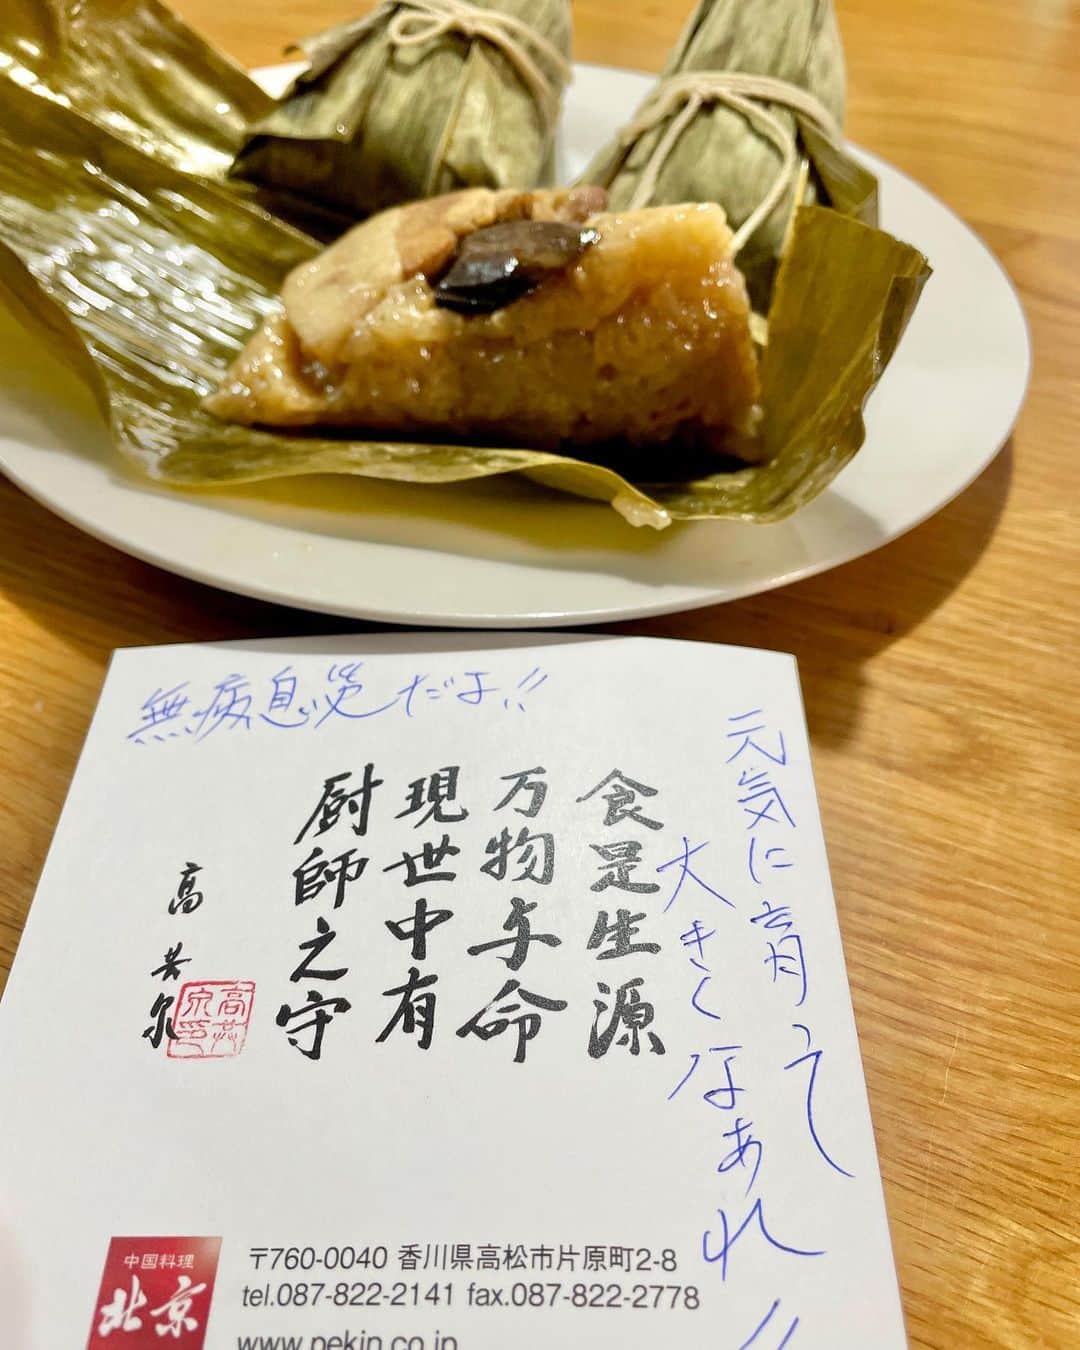 無病息災だよ!!
元気に育って
大きくなあれ!!
食足生源
万物与命
現世中有
厨師之守
高
中国料理
北京
〒760-0040 香川県高松市片原町2-8
tel.087-822-2141 fax.087-822-2778
www.pekin.co.jp